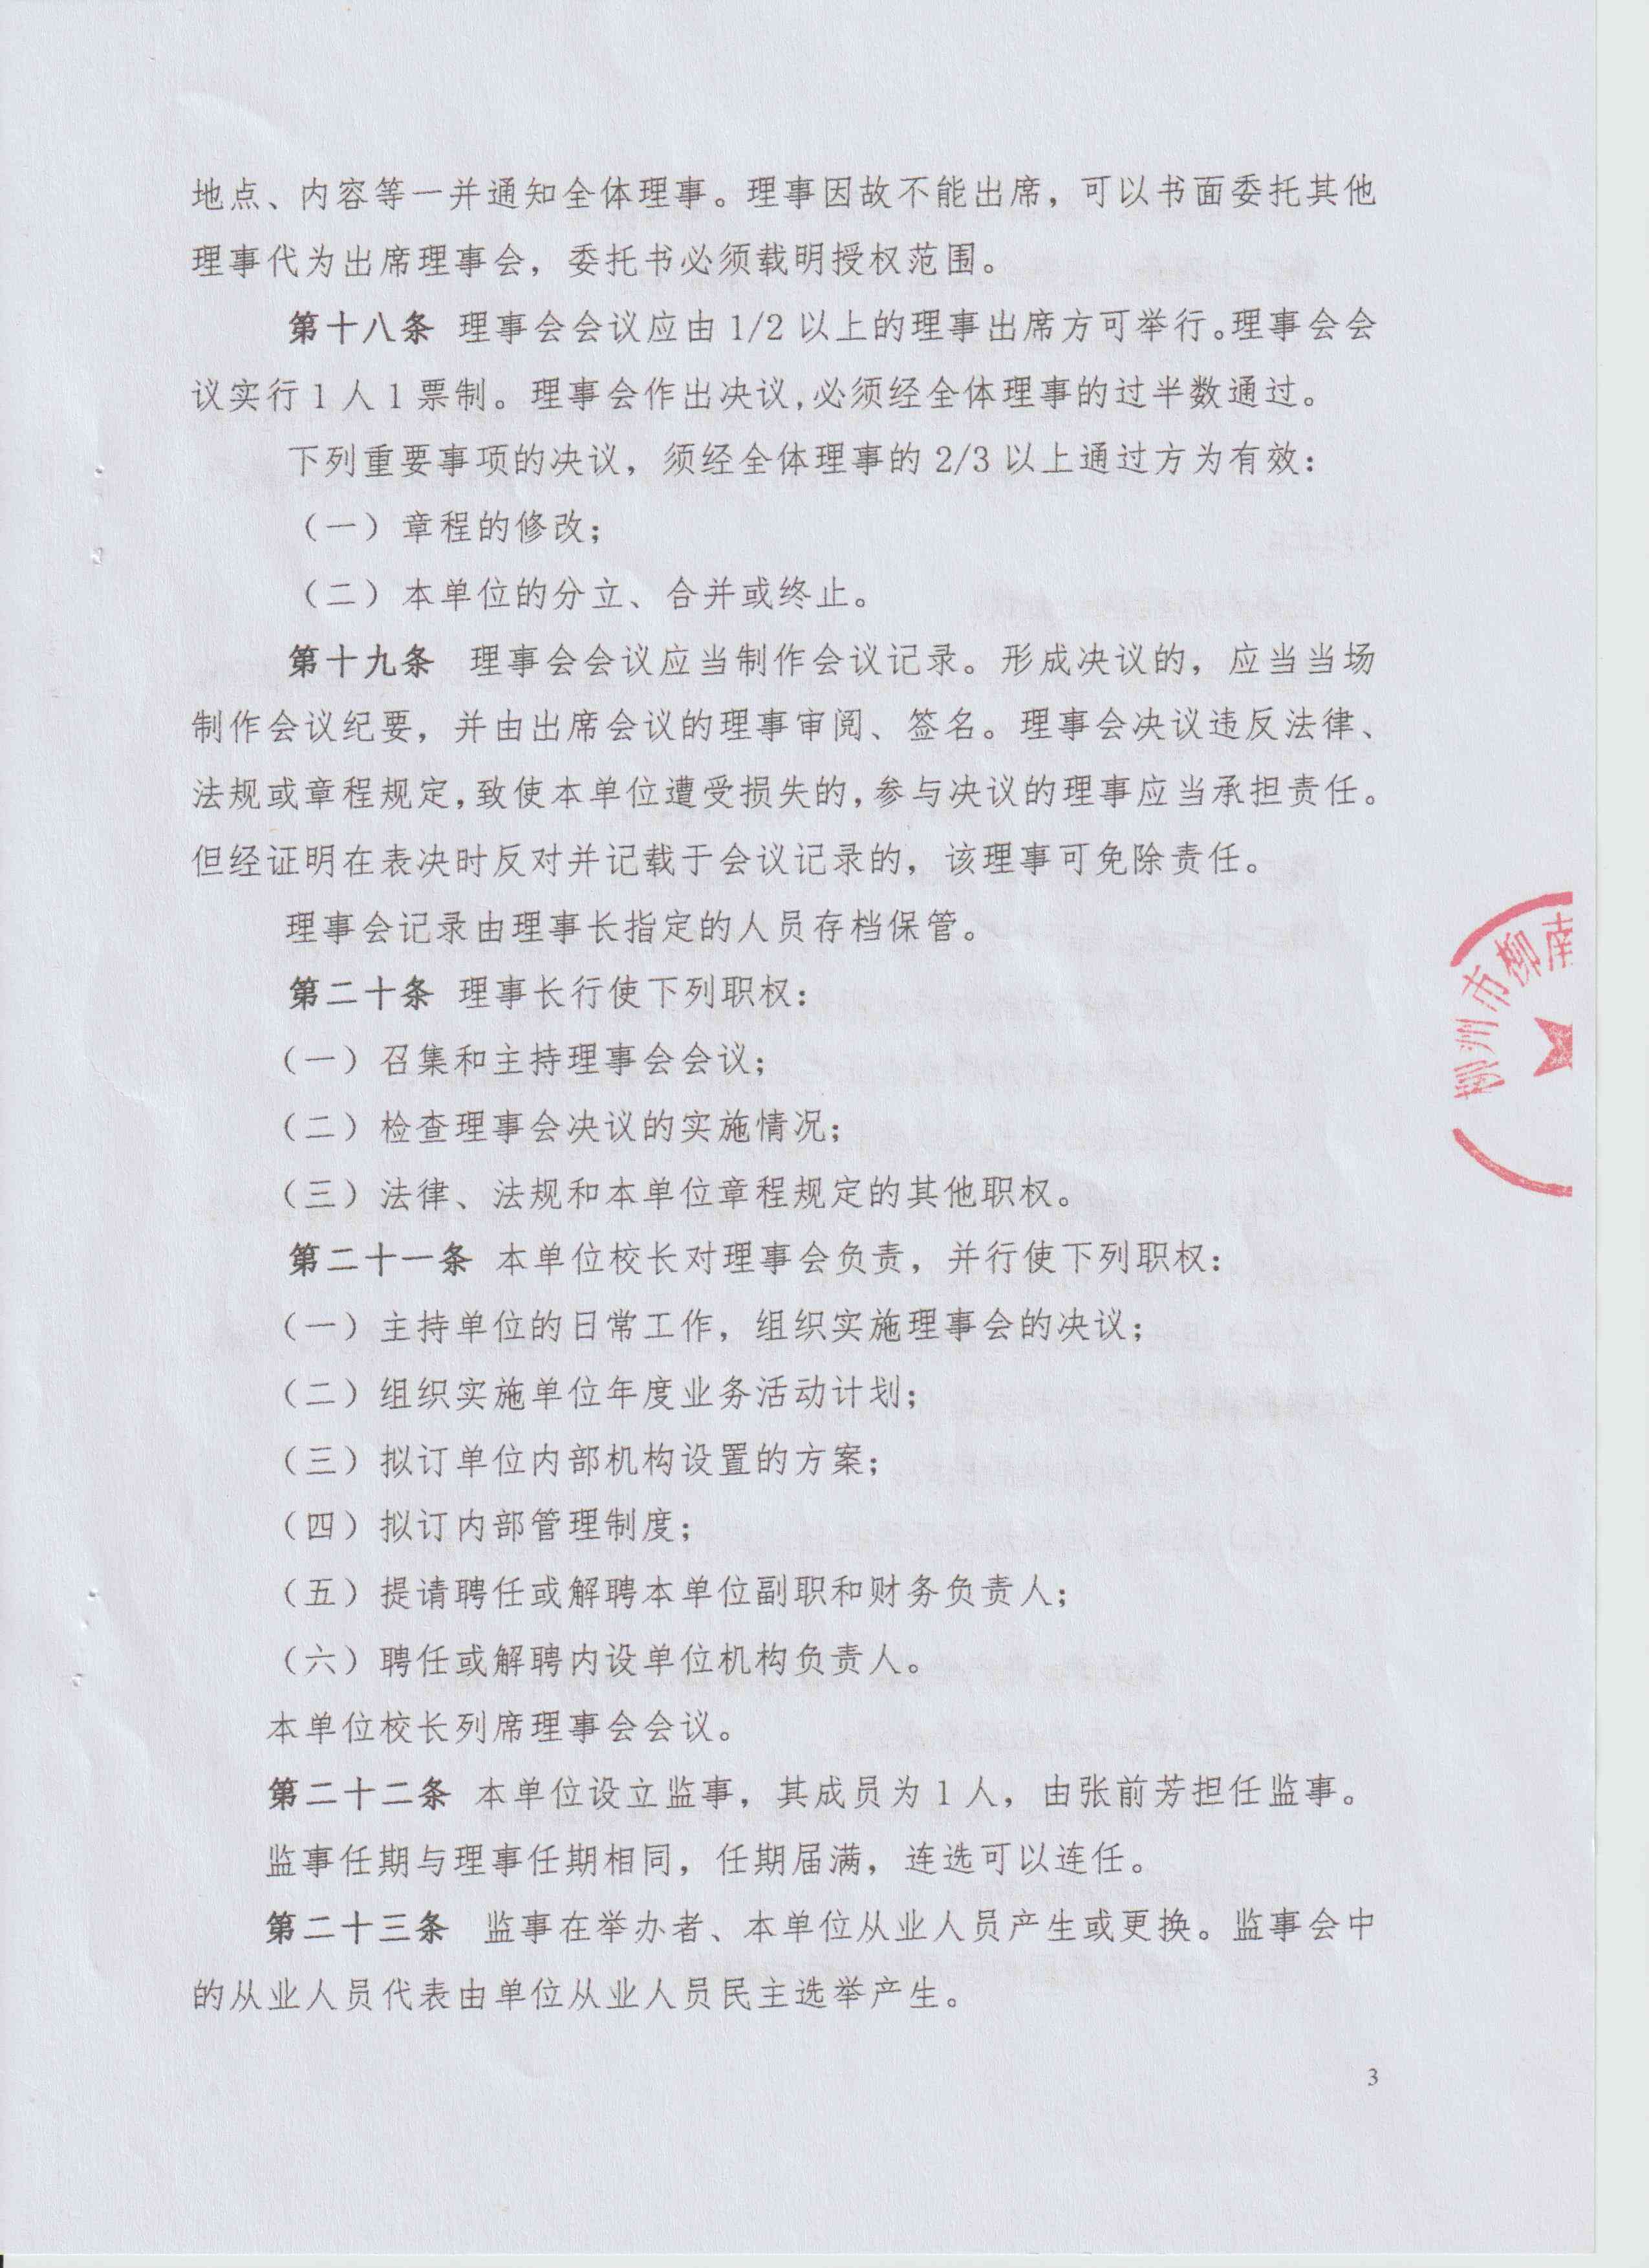 地点、内容等一并通知全体理事。理事因故不能出席，可以书面委托其他
理事代为出席理事会，委托书必须载明授权范围。
第十八条 理事会会议应由 1/2 以上的理事出席方可举行。理事会会
议实行 1 人 1 票制。理事会作出决议,必须经全体理事的过半数通过。
下列重要事项的决议，须经全体理事的 2/3 以上通过方为有效：
（一）章程的修改；
（二）本单位的分立、合并或终止。
第十九条 理事会会议应当制作会议记录。形成决议的，应当当场
制作会议纪要，并由出席会议的理事审阅、签名。理事会决议违反法律、
法规或章程规定,致使本单位遭受损失的,参与决议的理事应当承担责任。
但经证明在表决时反对并记载于会议记录的，该理事可免除责任。
理事会记录由理事长指定的人员存档保管。
第二十条 理事长行使下列职权：
（一）召集和主持理事会会议；
（二）检查理事会决议的实施情况；
（三）法律、法规和本单位章程规定的其他职权。
第二十一条 本单位校长对理事会负责，并行使下列职权：
（一）主持单位的日常工作，组织实施理事会的决议；
（二）组织实施单位年度业务活动计划；
（三）拟订单位内部机构设置的方案；
（四）拟订内部管理制度；
（五）提请聘任或解聘本单位副职和财务负责人；
（六）聘任或解聘内设单位机构负责人。
本单位校长列席理事会会议。
第二十二条 本单位设立监事，其成员为 1 人，由张前芳担任监事。
监事任期与理事任期相同，任期届满，连选可以连任。
第二十三条 监事在举办者、本单位从业人员产生或更换。监事会中
的从业人员代表由单位从业人员民主选举产生。
3
柳州市柳南